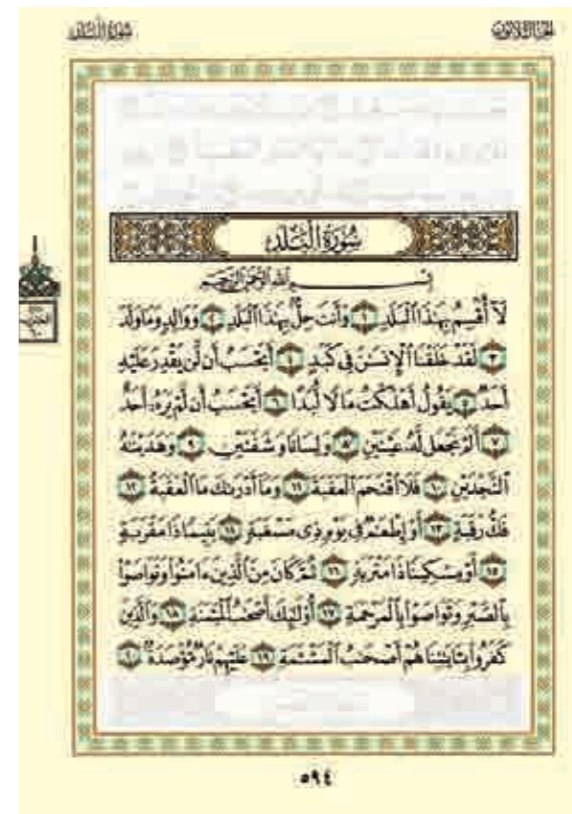 سورة البلد
الجزء الثلاثون
سُورَةُ الْبَلَدِ
بِسْمِ اللَّهِ الرَّحْمَٰنِ الرَّحِيمِ
لَآ أُقْسِمُ بِهَٰذَا ٱلْبَلَدِ ١ وَأَنتَ حِلٌّۢ بِهَٰذَا ٱلْبَلَدِ ٢ وَوَالِدٍ وَمَا وَلَدَ
٣ لَقَدْ خَلَقْنَا ٱلْإِنسَٰنَ فِى كَبَدٍ ٤ أَيَحْسَبُ أَن لَّن يَقْدِرَ عَلَيْهِ
أَحَدٌ ٥ يَقُولُ أَهْلَكْتُ مَالًا لُّبَدًا ٦ أَيَحْسَبُ أَن لَّمْ يَرَهُۥٓ أَحَدٌ
٧ أَلَمْ نَجْعَل لَّهُۥ عَيْنَيْنِ ٨ وَلِسَانًا وَشَفَتَيْنِ ٩ وَهَدَيْنَٰهُ
ٱلنَّجْدَيْنِ ١٠ فَلَا ٱقْتَحَمَ ٱلْعَقَبَةَ ١١ وَمَآ أَدْرَىٰكَ مَا ٱلْعَقَبَةُ ١٢
فَكُّ رَقَبَةٍ ١٣ أَوْ إِطْعَٰمٌ فِى يَوْمٍ ذِى مَسْغَبَةٍ ١٤ يَتِيمًا ذَا مَقْرَبَةٍ
١٥ أَوْ مِسْكِينًا ذَا مَتْرَبَةٍ ١٦ ثُمَّ كَانَ مِنَ ٱلَّذِينَ ءَامَنُوا۟ وَتَوَاصَوْا۟
بِٱلصَّبْرِ وَتَوَاصَوْا۟ بِٱلْمَرْحَمَةِ ١٧ أُو۟لَٰٓئِكَ أَصْحَٰبُ ٱلْمَيْمَنَةِ ١٨ وَٱلَّذِينَ
كَفَرُوا۟ بِـَٔايَٰتِنَا هُمْ أَصْحَٰبُ ٱلْمَشْـَٔمَةِ ١٩ عَلَيْهِمْ نَارٌ مُّؤْصَدَةٌۢ ٢٠
٥٩٤